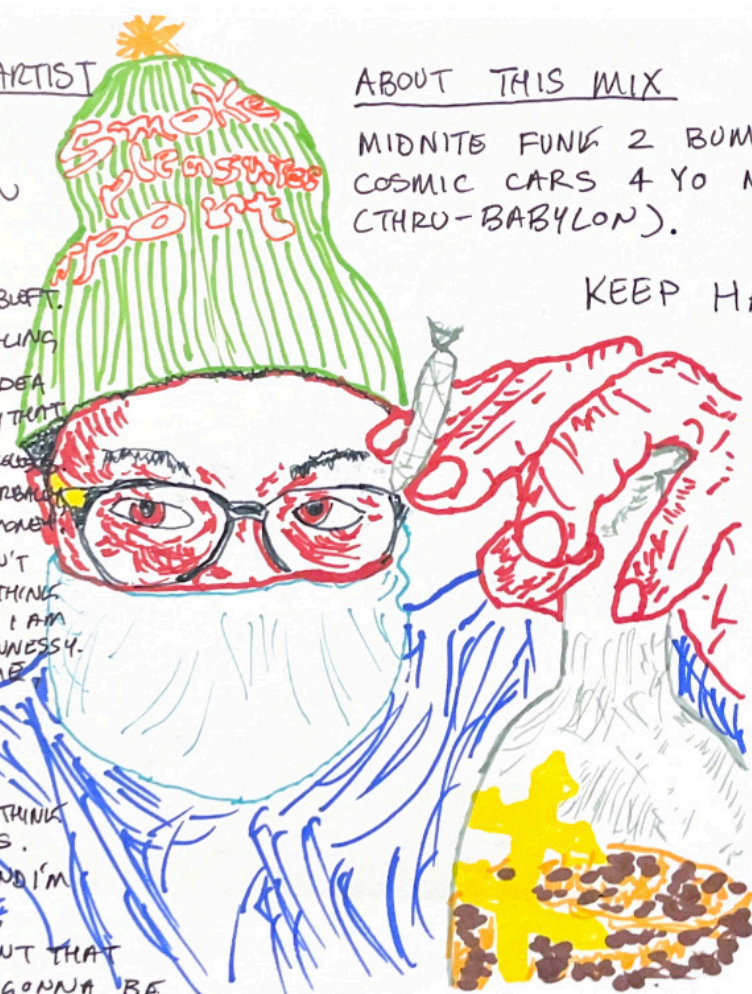 ARTIST
BLEFT.
LING
DEA
THAT
RBALLY
MONEY.
N'T
THING
I AM
NNESSY.
ME
THINK
S.
ND I'M
NT THAT
GONNA BE
Smoke
point
ABOUT THIS MIX
MIDNITE FUNK 2 BUM
COSMIC CARS 4 YO
(THRU-BABYLON).
KEEP HA